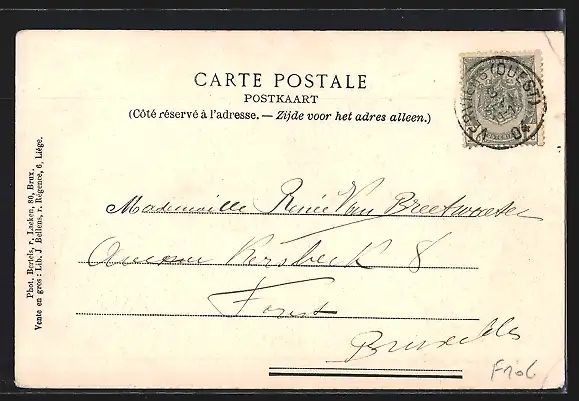 CARTE POSTALE
POSTKAART
(Côté réservé à l'adresse. — Zijde voor het adres alleen.)
VERVIERS (OUEST)
04
Mademoiselle Renée Van Breetwater
Avenue Kersbeek 8
Forest
Bruxelles
Phot. Bertels, r. Laeken, 80, Brux.
Vente en gros: Lib. J Bellens, r. Régence, 6, Liége.
F106